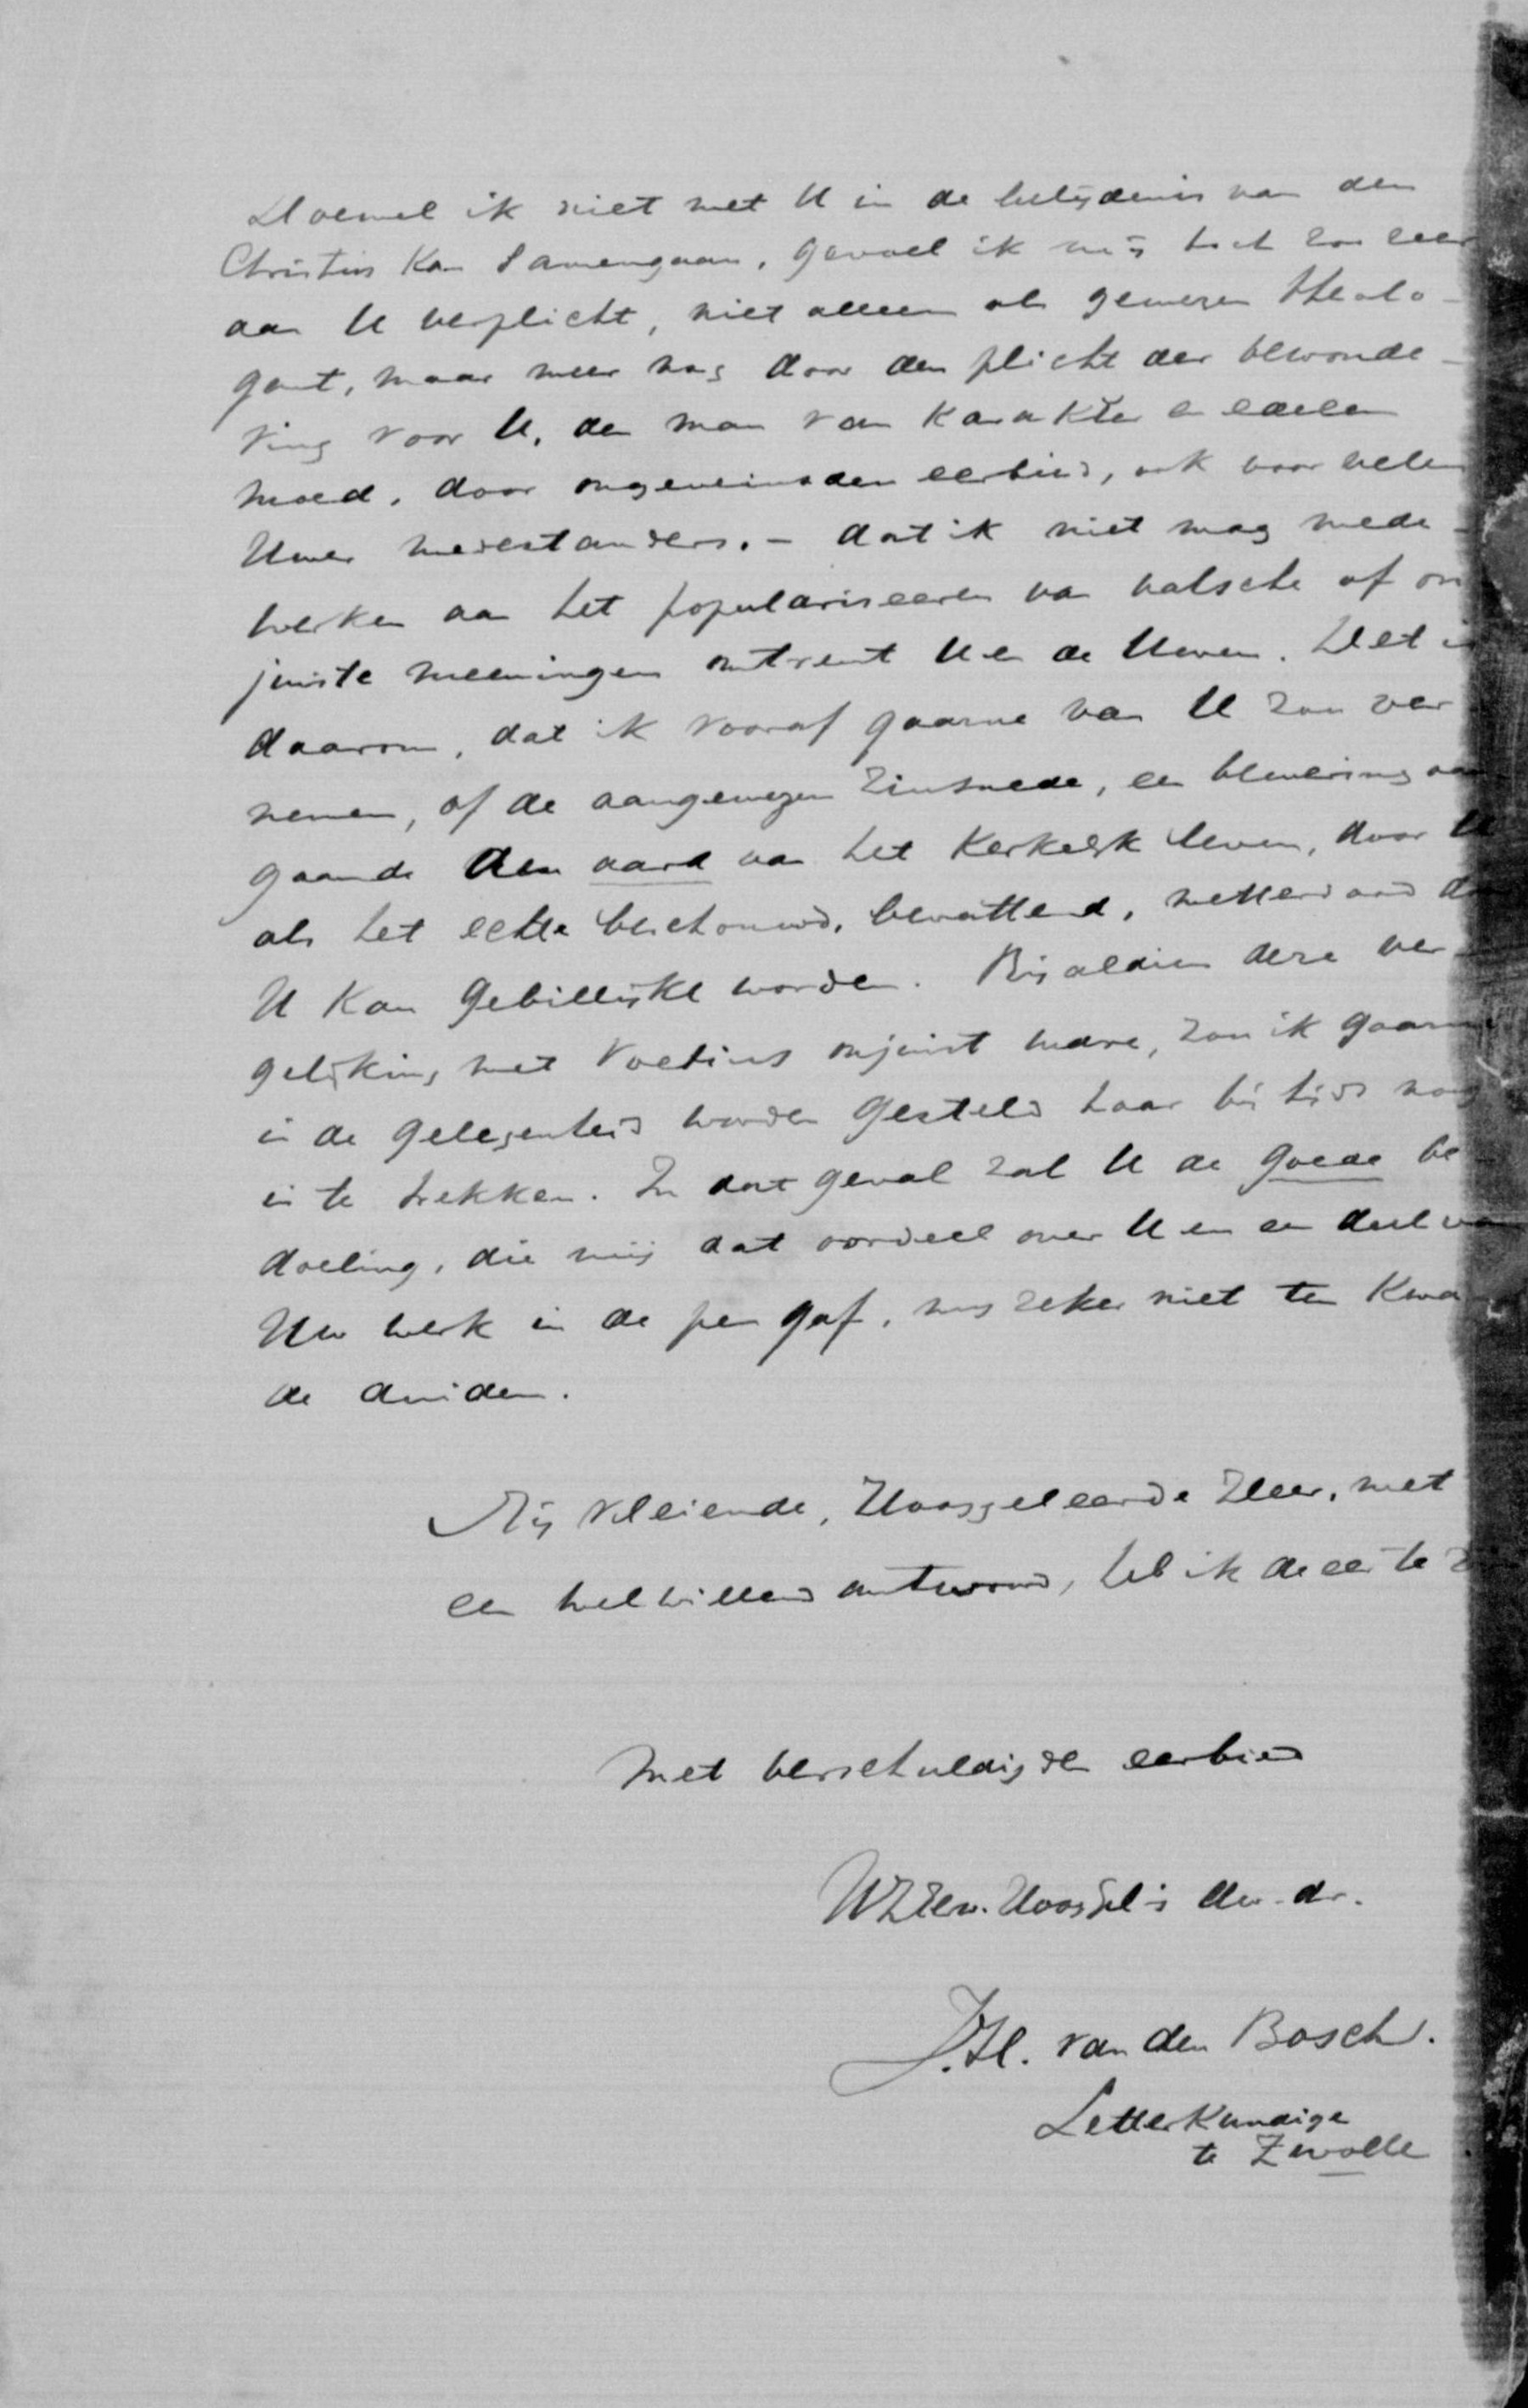 Hoewel ik niet met U in de belijdenis van den
Christus kan samengaan, gevoel ik mij toch zoo zeer
aan U verplicht, niet alleen als gewezen theolo-
gant, maar meer nog door den plicht der bewonde-
ring voor U, den man van karakter en edelen
moed, door ongeveinsden eerbied, ook voor velen
Uwer medestanders. - dat ik niet mag mede-
werken aan het populariseeren van valsche of on
juiste meeningen omtrent U en de Uwen. Het is
daarom, dat ik vooraf gaarne van U zou ver
nemen, of de aangewezen zinsnede, een bewering aan
gaande den aard van het kerkelijk leven, door U
als het echte beschouwd, bevattend, metterdaad door
U kan gebillijkt worden. Bijaldien deze ver-
gelijking met Voetius onjuist ware, zou ik gaarne
in de gelegenheid worden gesteld haar bij tijds nog
in te trekken. In dat geval zal U de goede be-
doeling, die mij dat oordeel over U en een deel van
Uw werk in de pen gaf, mij zeker niet ten kwa-
de duiden.
Mij vleiende, Hooggeleerde Heer, met
een welwillend antwoord, heb ik de eer te
Met verschuldigden eerbied
Uw dr.
J.H. van den Bosch.
Letterkundige
te Zwolle